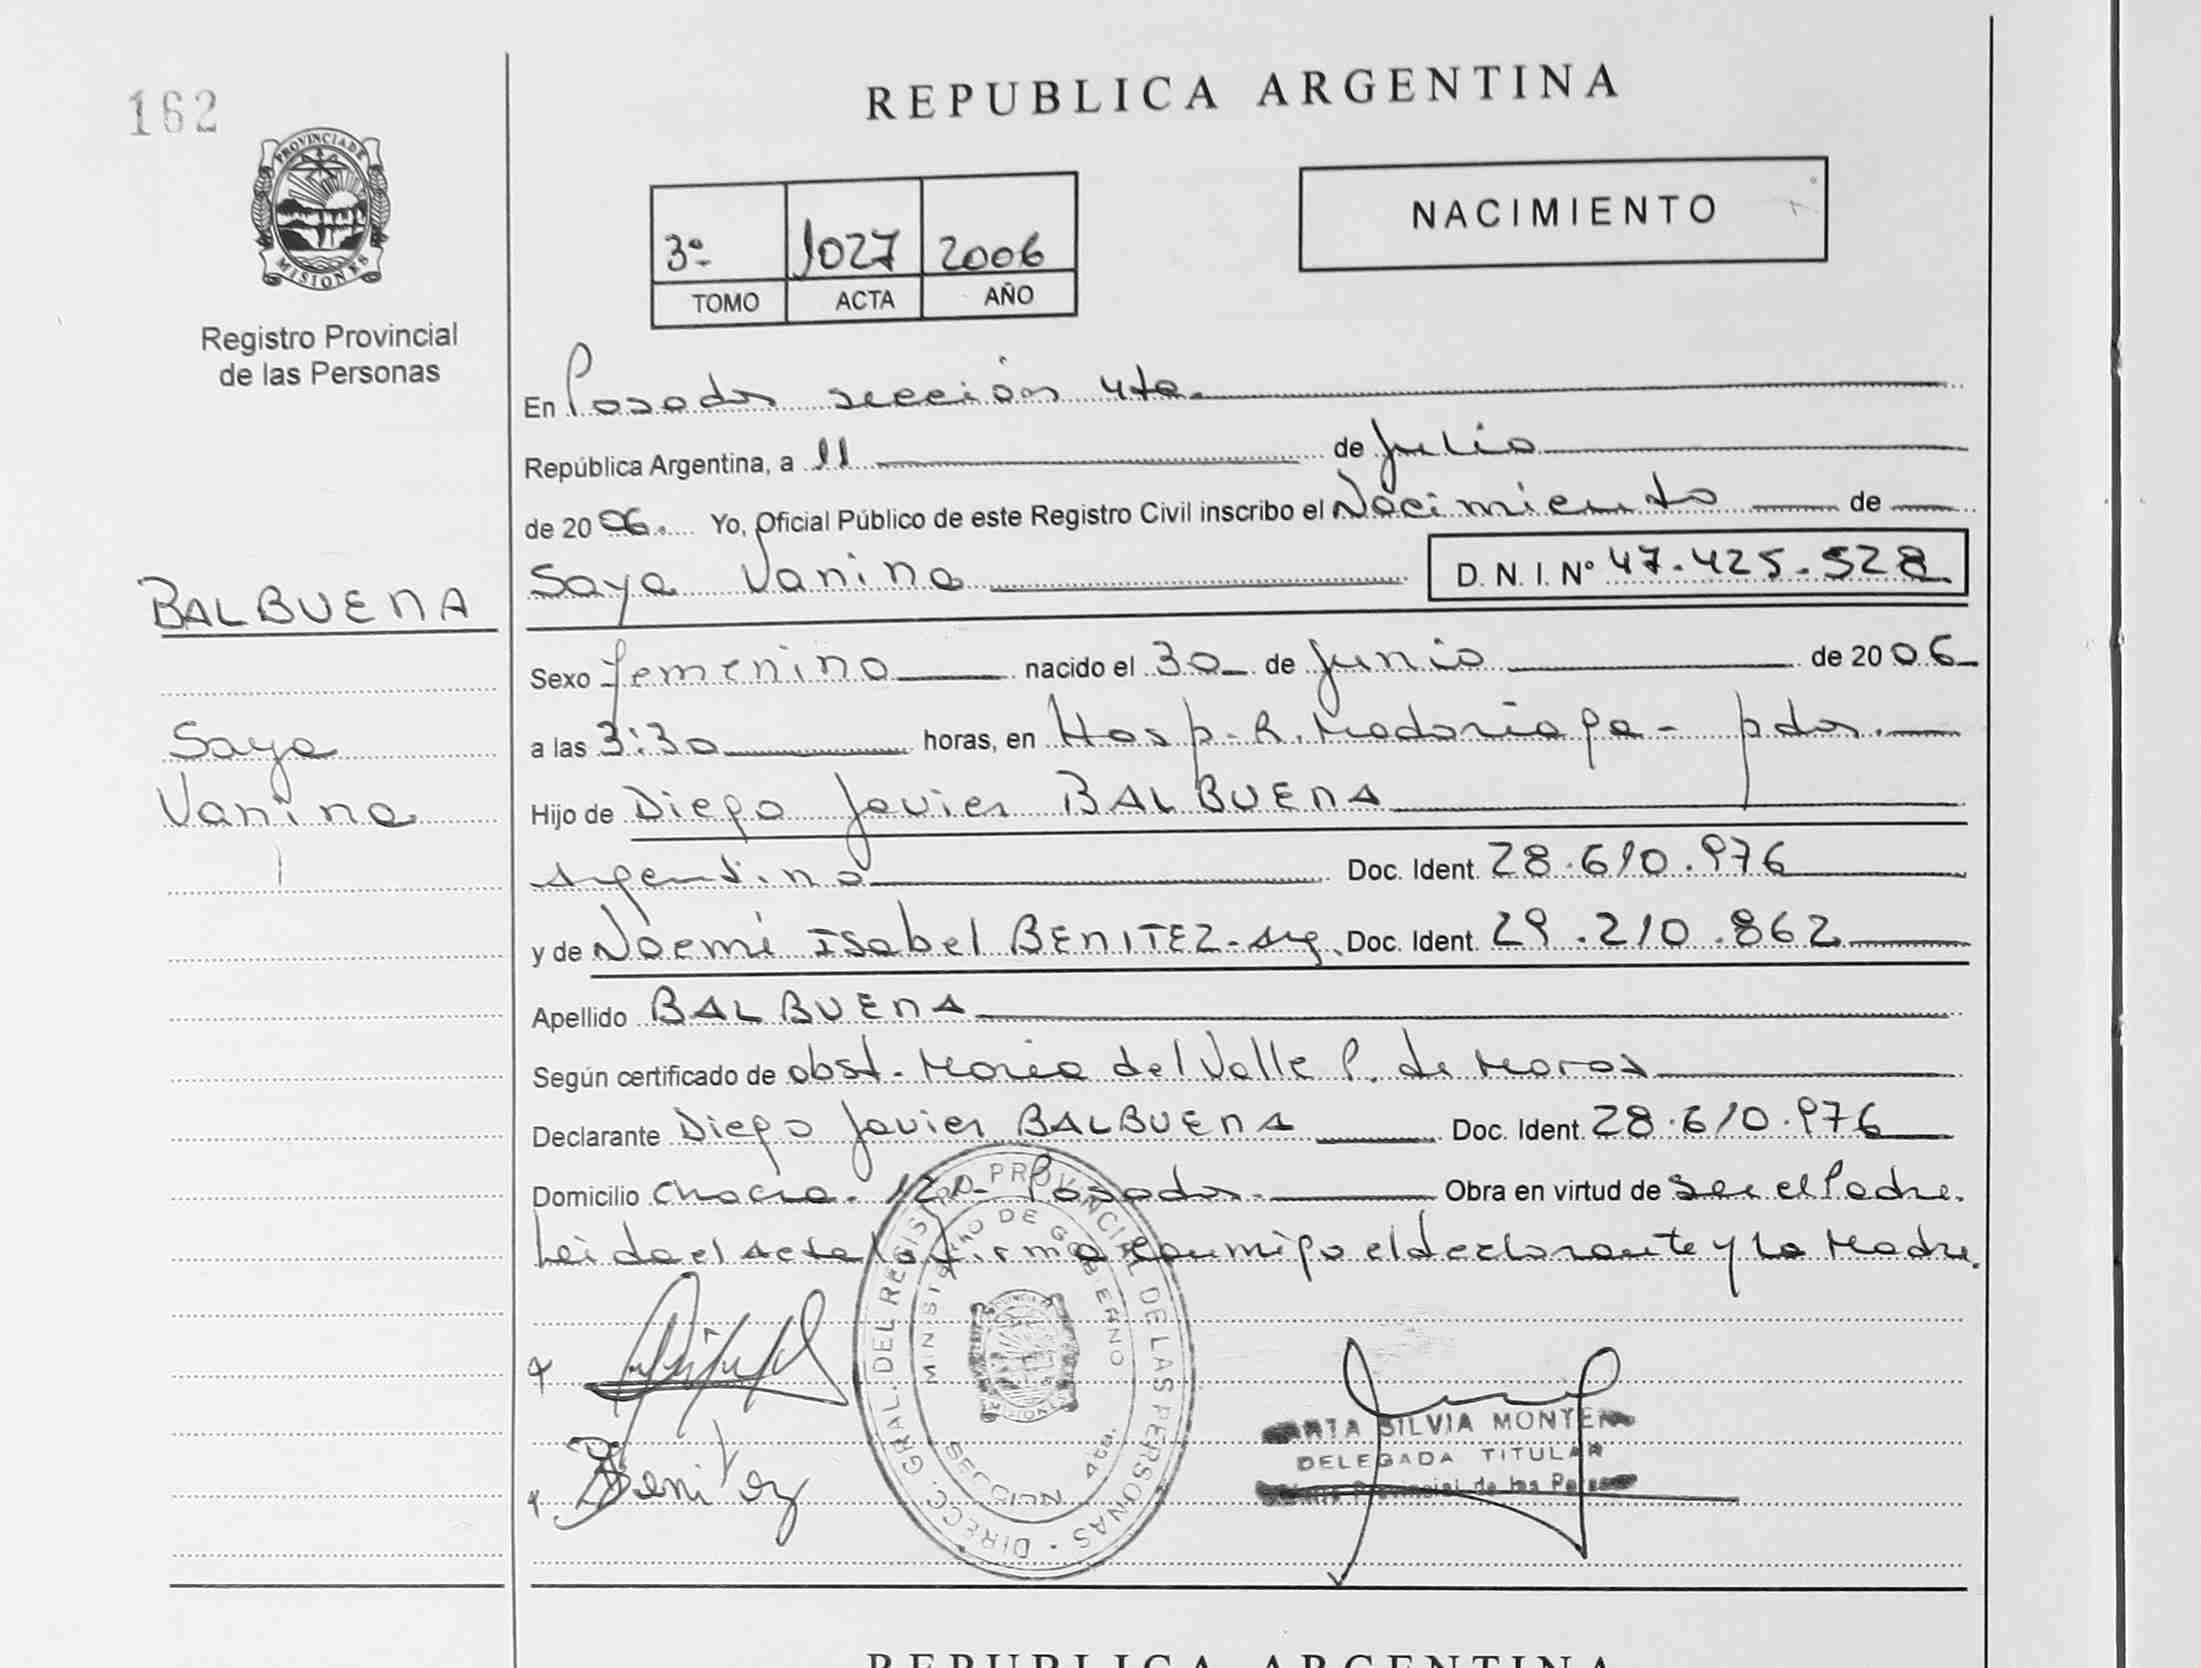 162
PROVINCIA DE
MISIONES
Registro Provincial
de las Personas
BALBUENA
Saya
Vanina
REPUBLICA ARGENTINA
3º 1027 2006
TOMO ACTA AÑO
NACIMIENTO
En Posadas sección 4ta.
República Argentina, a 11 de Julio
de 2006. Yo, Oficial Público de este Registro Civil inscribo el Nacimiento de
Saya Vanina D. N. I. Nº 47.425.528
Sexo femenino nacido el 30 de Junio de 2006
a las 3:30 horas, en Hosp. R. Madariaga - pdas.
Hijo de Diego Javier BALBUENA
Argentino Doc. Ident. 28.610.976
y de Noemi Isabel BENITEZ - Arg. Doc. Ident. 29.210.862
Apellido BALBUENA
Según certificado de obst. Maria del Valle P. de
Declarante Diego Javier BALBUENA Doc. Ident. 28.610.976
Domicilio Chacra. 120 - Posadas. Obra en virtud de ser el Padre.
Leida el acta la firma conmigo el declarante y la Madre.
Benitez
DIRECC. GRAL. DEL REGISTRO PROVINCIAL DE LAS PERSONAS
MINISTERIO DE GOBIERNO
SECCION 4ta.
SILVIA
DELEGADA TITULAR
Provincial de las
REPUBLICA ARGENTINA